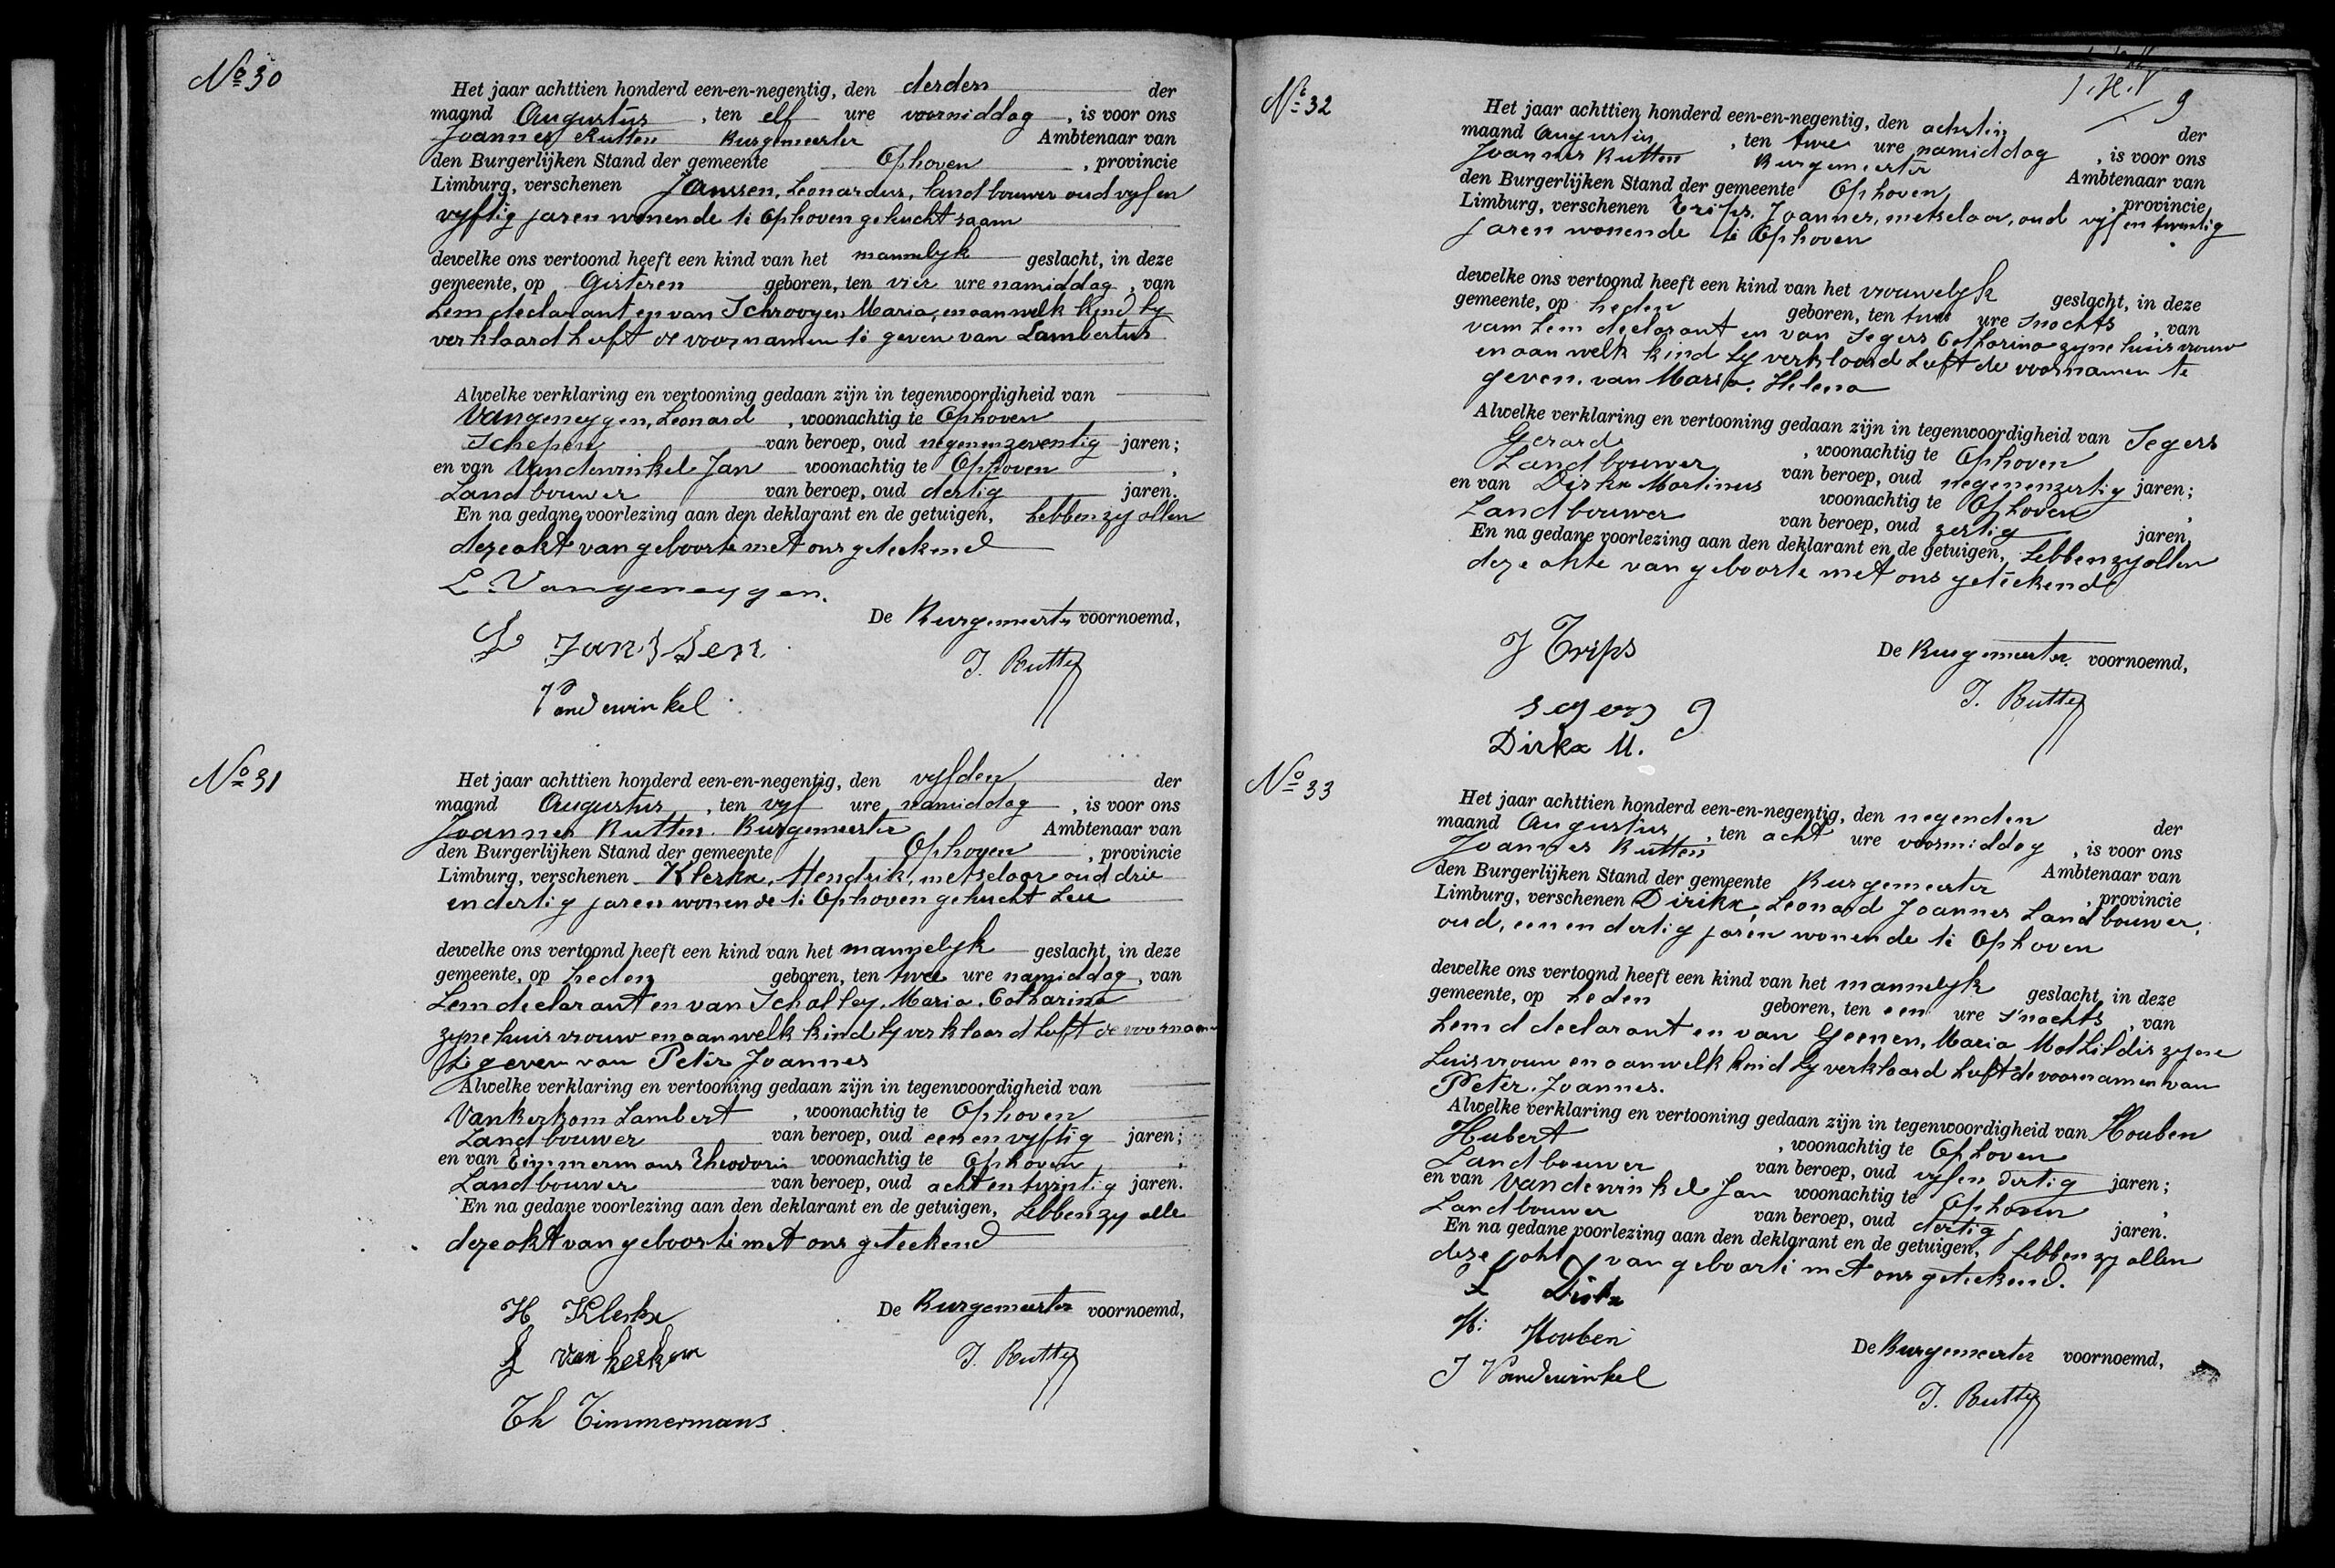 No 30
Het jaar achttien honderd een-en-negentig, den derden der
maand Augustus, ten elf ure voormiddag, is voor ons
Joannes Rutten Burgemeester Ambtenaar van
den Burgerlijken Stand der gemeente Ophoven, provincie
Limburg, verschenen Janssen, Leonardus, landbouwer oud vyf en
vyftig jaren wonende te Ophoven gehucht
dewelke ons vertoond heeft een kind van het mannelyk geslacht, in deze
gemeente, op Gisteren geboren, ten vier ure namiddag, van
hem declarant en van Schrooyen Maria, en aan welk kind hy
verklaard heeft de voornamen te geven van Lambertus
Alwelke verklaring en vertooning gedaan zijn in tegenwoordigheid van
Vangeneygen, Leonard, woonachtig te Ophoven
Schepen van beroep, oud negenenzeventig jaren;
en van Vandewinkel Jan woonachtig te Ophoven,
Landbouwer van beroep, oud dertig jaren.
En na gedane voorlezing aan den deklarant en de getuigen, hebben zy allen
deze akt van geboorte met ons geteekend
L. Vangeneygen.
De Burgemeester voornoemd,
L Janssen
J. Rutten
Vandewinkel
No 31
Het jaar achttien honderd een-en-negentig, den vyfden der
maand Augustus, ten vyf ure namiddag, is voor ons
Joannes Rutten. Burgemeester Ambtenaar van
den Burgerlijken Stand der gemeente Ophoven, provincie
Limburg, verschenen Klerkx, Hendrik, metselaar oud drie
en dertig jaren wonende te Ophoven gehucht
dewelke ons vertoond heeft een kind van het mannelyk geslacht, in deze
gemeente, op heden geboren, ten twee ure namiddag, van
hem declarant en van Scholley, Maria, Catharina
zyne huisvrouw en aan welk kind hy verklaard heeft de voornamen
te geven van Peter Joannes
Alwelke verklaring en vertooning gedaan zijn in tegenwoordigheid van
Vankerkom Lambert, woonachtig te Ophoven
Landbouwer van beroep, oud eenenvyftig jaren;
en van Timmermans Theodoris woonachtig te Ophoven,
Landbouwer van beroep, oud achtentwintig jaren.
En na gedane voorlezing aan den deklarant en de getuigen, hebben zy alle
deze akt van geboorte met ons geteekend
H Klerkx
De Burgemeester voornoemd,
L van kerkom
J. Rutten
Th Timmermans
9
No 32
Het jaar achttien honderd een-en-negentig, den achsten der
maand Augustus, ten twee ure namiddag, is voor ons
Joannes Rutten Burgemeester Ambtenaar van
den Burgerlijken Stand der gemeente Ophoven, provincie
Limburg, verschenen Trips, Joannes, metselaar, oud vyf en twentig
jaren wonende te Ophoven
dewelke ons vertoond heeft een kind van het vrouwelyk geslacht, in deze
gemeente, op heden geboren, ten twee ure snachts, van
van hem declarant en van Segers Catharina zyne huisvrouw
en aan welk kind hy verklaard heeft de voornamen te
geven. van Maria. Helena
Alwelke verklaring en vertooning gedaan zijn in tegenwoordigheid van Segers
Gerard, woonachtig te Ophoven
Landbouwer van beroep, oud negenenzestig jaren;
en van Dirkx Martinus woonachtig te Ophoven,
Landbouwer van beroep, oud zestig jaren,
En na gedane voorlezing aan den deklarant en de getuigen, hebben zy allen
deze akte van geboorte met ons geteekend
J Trips
De Burgemeester voornoemd,
segers g
J. Rutten
Dirkx M.
No 33
Het jaar achttien honderd een-en-negentig, den negenden der
maand Augustus, ten acht ure voormiddag, is voor ons
Joannes Rutten Ambtenaar van
den Burgerlijken Stand der gemeente Burgemeester, provincie
Limburg, verschenen Dirikx, Leonard Joannes Landbouwer,
oud, eenendertig jaren wonende te Ophoven
dewelke ons vertoond heeft een kind van het mannelyk geslacht, in deze
gemeente, op heden geboren, ten een ure s'nachts, van
hem declarant en van Geenen, Maria Mathildis zyne
huisvrouw en aan welk kind hy verklaard heeft de voornamen van
Peter. Joannes.
Alwelke verklaring en vertooning gedaan zijn in tegenwoordigheid van Houben
Hubert, woonachtig te Ophoven
Landbouwer van beroep, oud vyf en dertig jaren;
en van Vandewinkel Jan woonachtig te Ophoven,
Landbouwer van beroep, oud dertig jaren.
En na gedane voorlezing aan den deklarant en de getuigen, hebben zy allen
deze akt van geboorte met ons geteekend.
L Dirkx
H: Houben
De Burgemeester voornoemd,
J Vandewinkel
J. Rutten